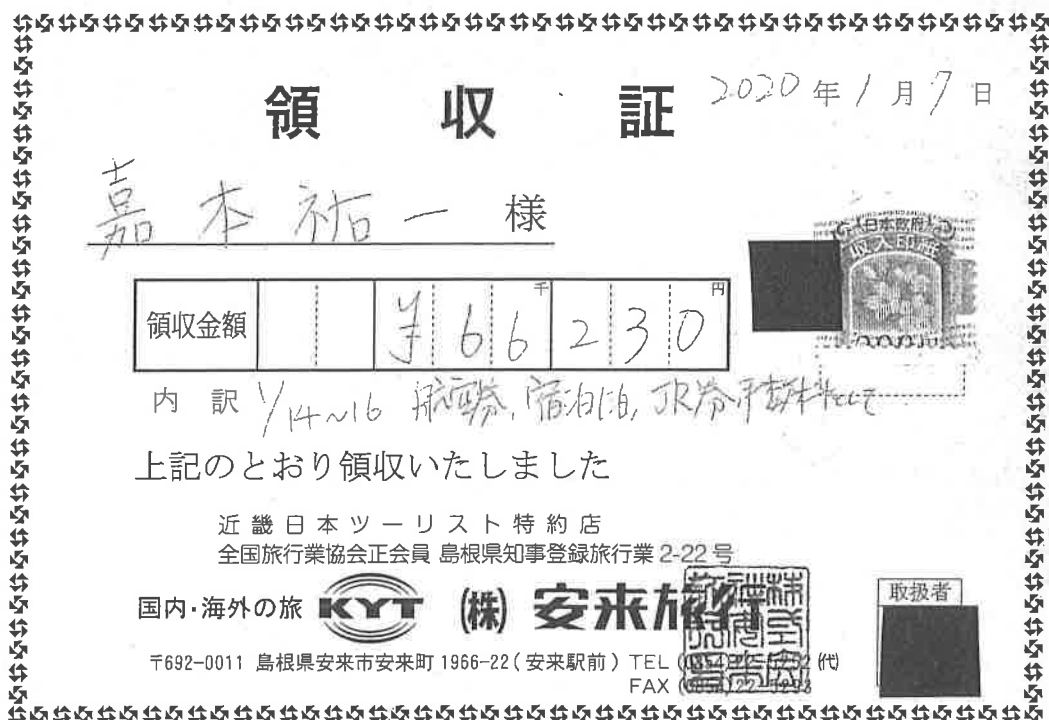 領収証
2020年1月7日
嘉本祐一 様
日本政府
収入印紙
領収金額 ¥66千230円
内訳 1/14~16 航空券,宿泊,JR券手数料として
上記のとおり領収いたしました
近畿日本ツーリスト特約店
全国旅行業協会正会員 島根県知事登録旅行業2-22号
国内・海外の旅 KYT (株) 安来旅行
取扱者
〒692-0011 島根県安来市安来町1966-22(安来駅前) TEL (代)
FAX